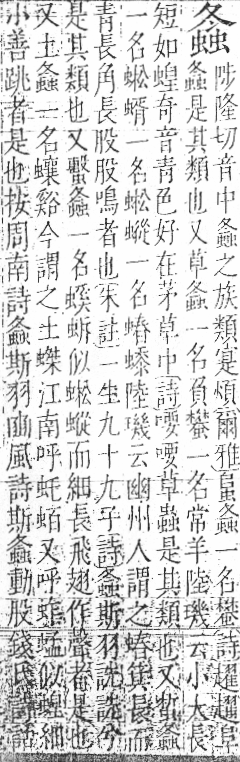 螽
陟隆切音中螽之族類寔煩爾雅𨸏螽一名蠜詩趯趯阜
螽是其類也又草螽一名負蠜一名常羊陸璣云小大長
短如蝗奇音青色好在茅草中詩喓喓草蟲是其類也又蜤螽
一名蜙蝑一名蜙䗥一名蝽蟍陸璣云幽州人謂之蝽箕長而
青長角長股股鳴者也朱註一生九十九子詩螽斯羽詵詵兮
是其類也又蟿螽一名螇蚸似蜙䗥而細長飛翅作聲者是也
又土螽一名蠰谿今謂之土蟝江南呼虴蛨又呼虴蜢似蝗細
小善跳者是也按周南詩螽斯羽豳風詩斯螽動股錢氏詩詁